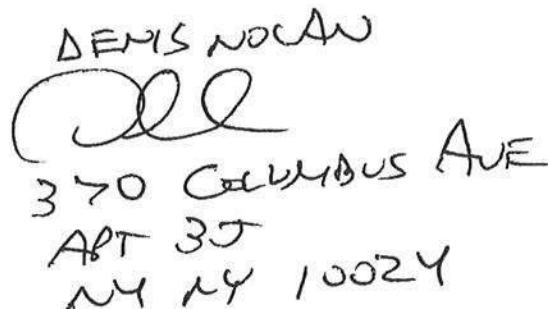 DENIS NOLAN
370 COLUMBUS AVE
APT 3J
NY NY 10024